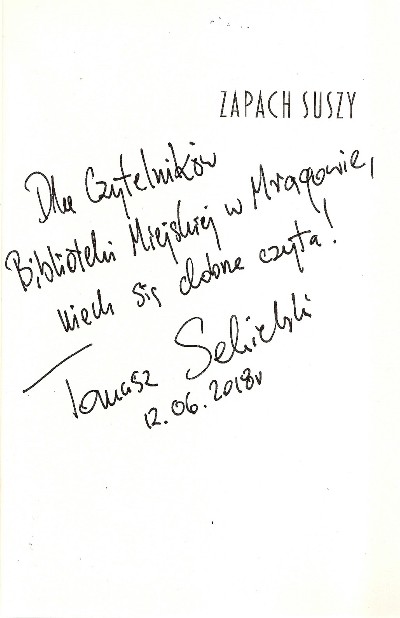 ZAPACH SUSZY
Dla Czytelników
Biblioteki Miejskiej w Mrągowie,
niech się dobrze czyta!
Tomasz Sekielski
12.06.2018r